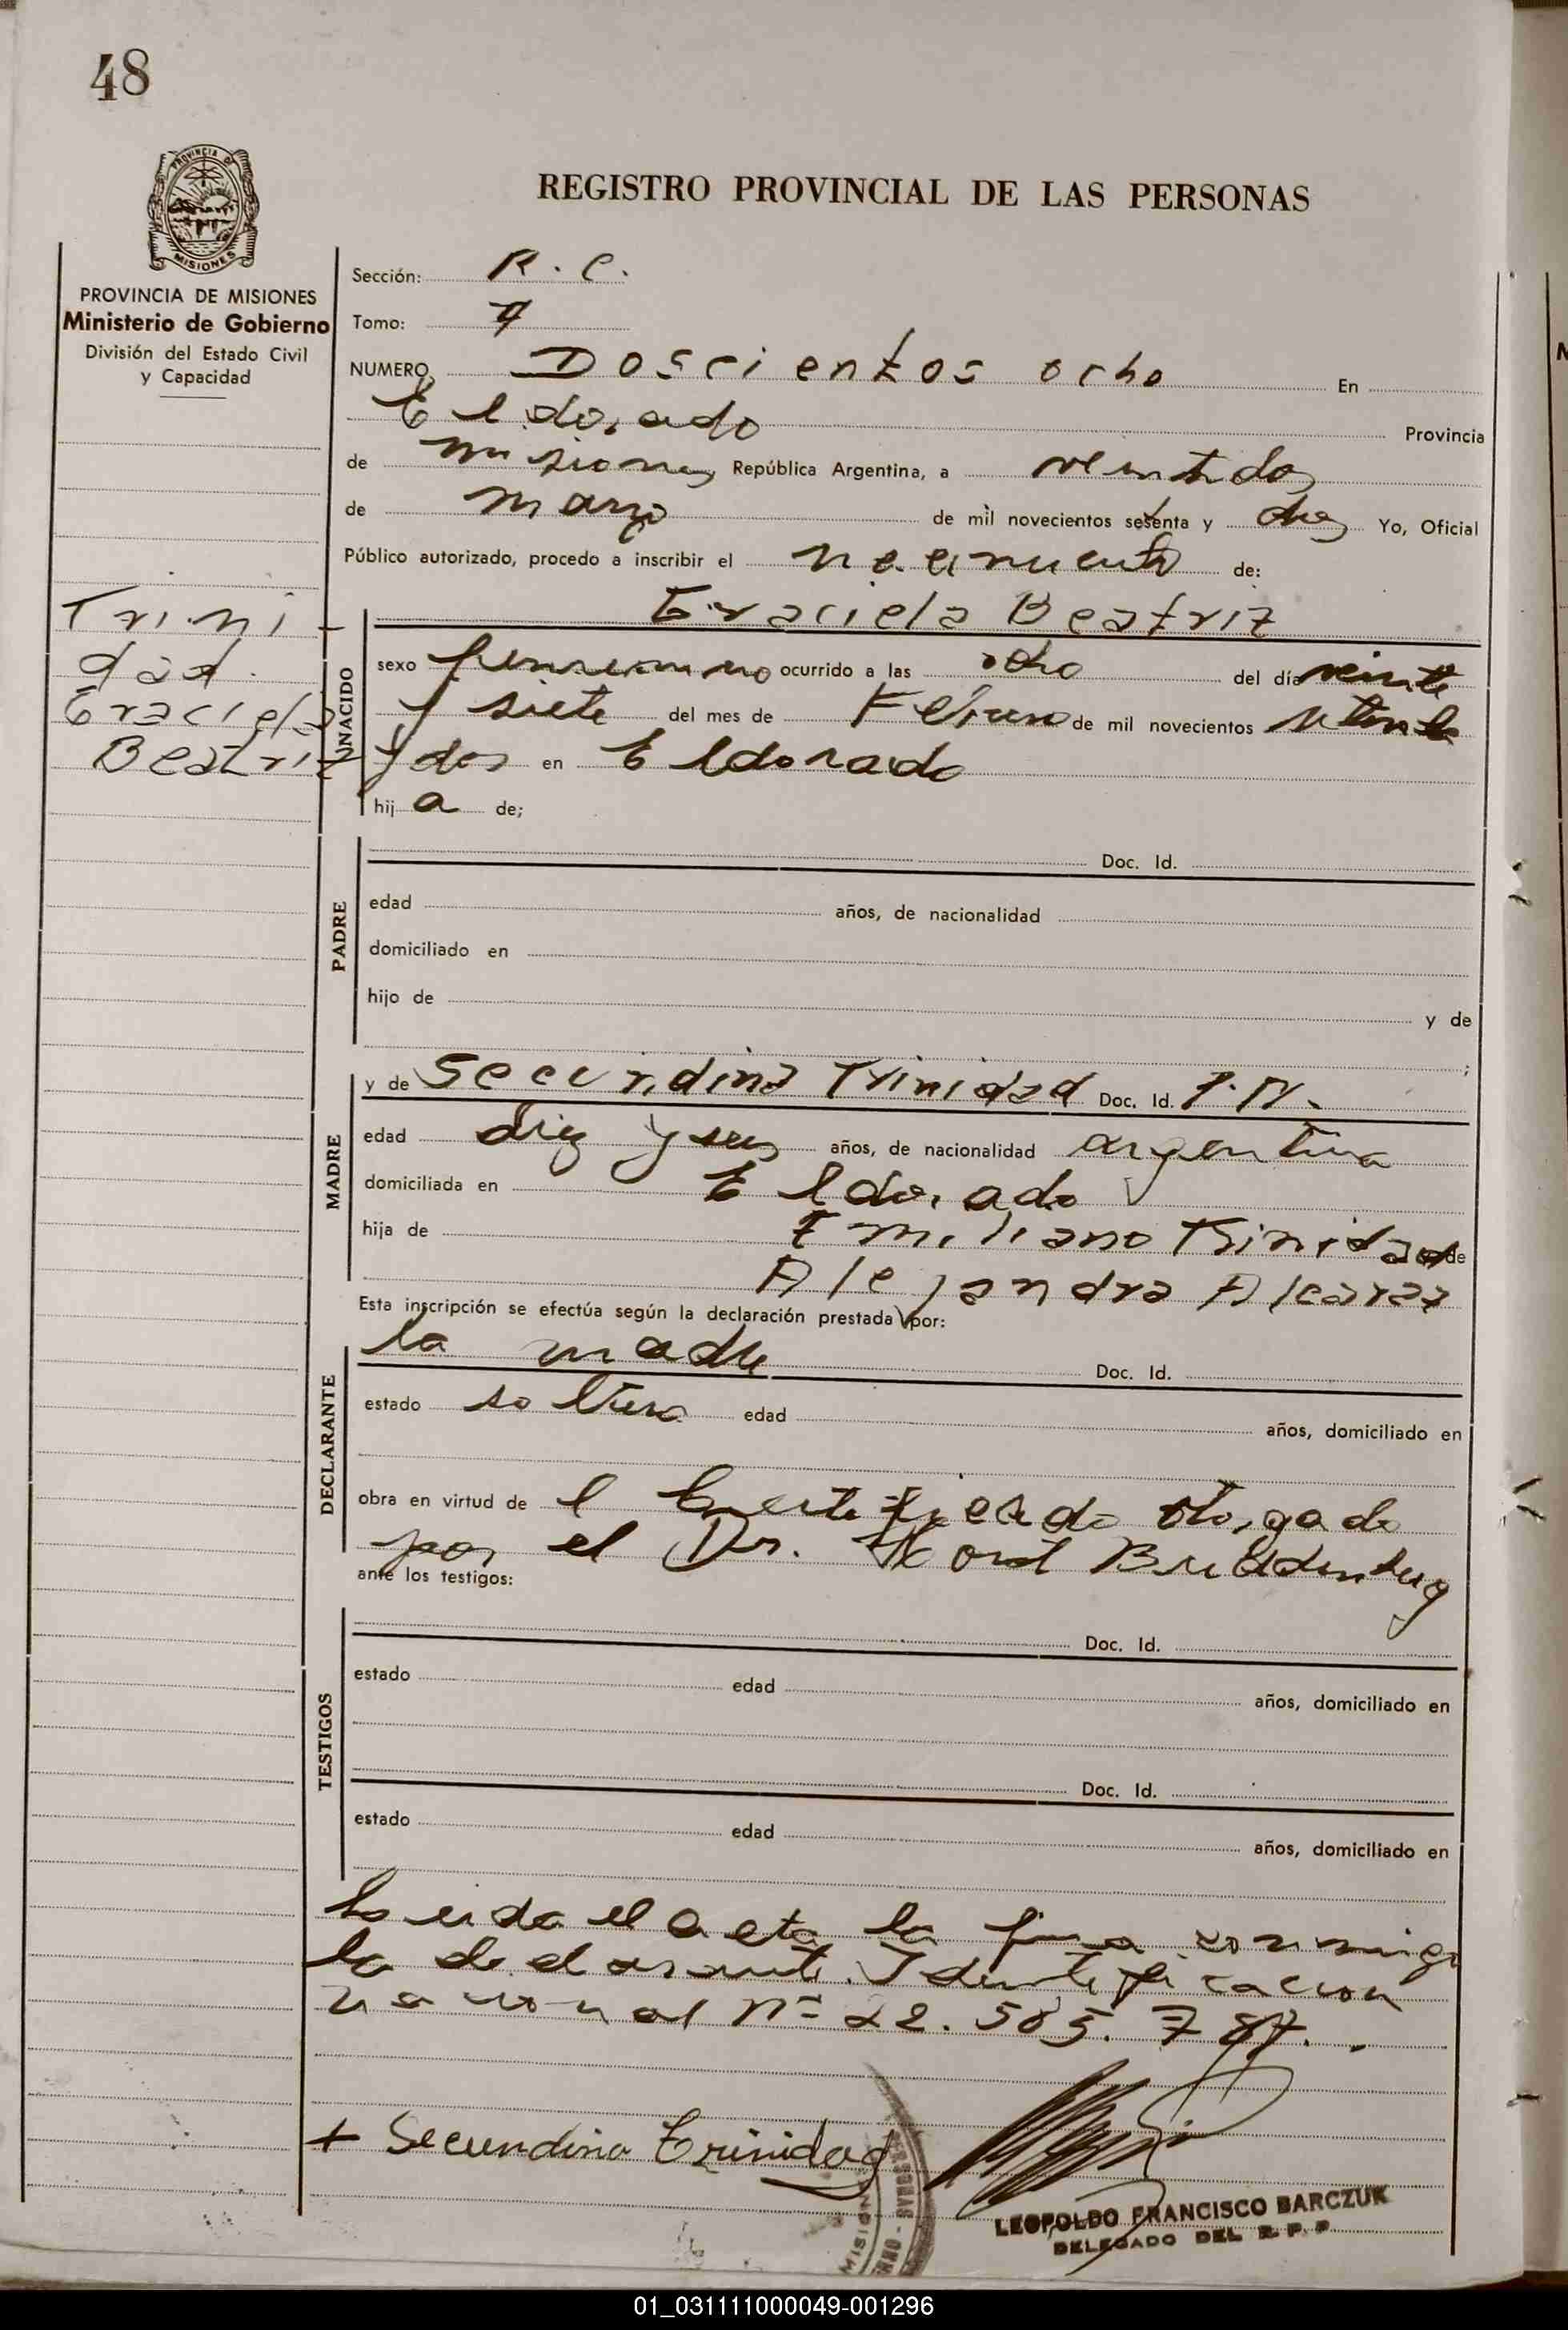 48
PROVINCIA DE
MISIONES
REGISTRO PROVINCIAL DE LAS PERSONAS
PROVINCIA DE MISIONES
Ministerio de Gobierno
División del Estado Civil
y Capacidad
Sección: R. C.
Tomo:
NUMERO, Doscientos ocho En
Eldorado Provincia
de Misiones República Argentina, a veintidos
de marzo de mil novecientos setenta y dos Yo, Oficial
Público autorizado, procedo a inscribir el nacimiento de:
Graciela Beatriz
Trini-
dad.
Graciela
Beatriz
NACIDO
sexo femenino ocurrido a las ocho del día veinte
y siete del mes de Febrero de mil novecientos setenta
y dos en Eldorado
hij a de;
PADRE
Doc. Id.
edad años, de nacionalidad
domiciliado en
hijo de y de
;
MADRE
y de Secundina Trinidad Doc. Id.
edad diez y seis años, de nacionalidad argentina
domiciliada en Eldorado
hija de Emiliano Trinidad y de
Alejandra Alcaraz
Esta inscripción se efectúa según la declaración prestada por:
DECLARANTE
la madre Doc. Id.
estado soltera edad años, domiciliado en
obra en virtud de l certificado otorgado
por el Dr.
ante los testigos:
TESTIGOS
Doc. Id.
estado edad años, domiciliado en
Doc. Id.
estado edad años, domiciliado en
Leida el acta la firma conmigo
la declarante. Identificacion
nacional Nº 22.585.787.
+ Secundina Trinidad
LEOPOLDO FRANCISCO BARCZUK
DELEGADO DEL R. P. P.
01_031111000049-001296